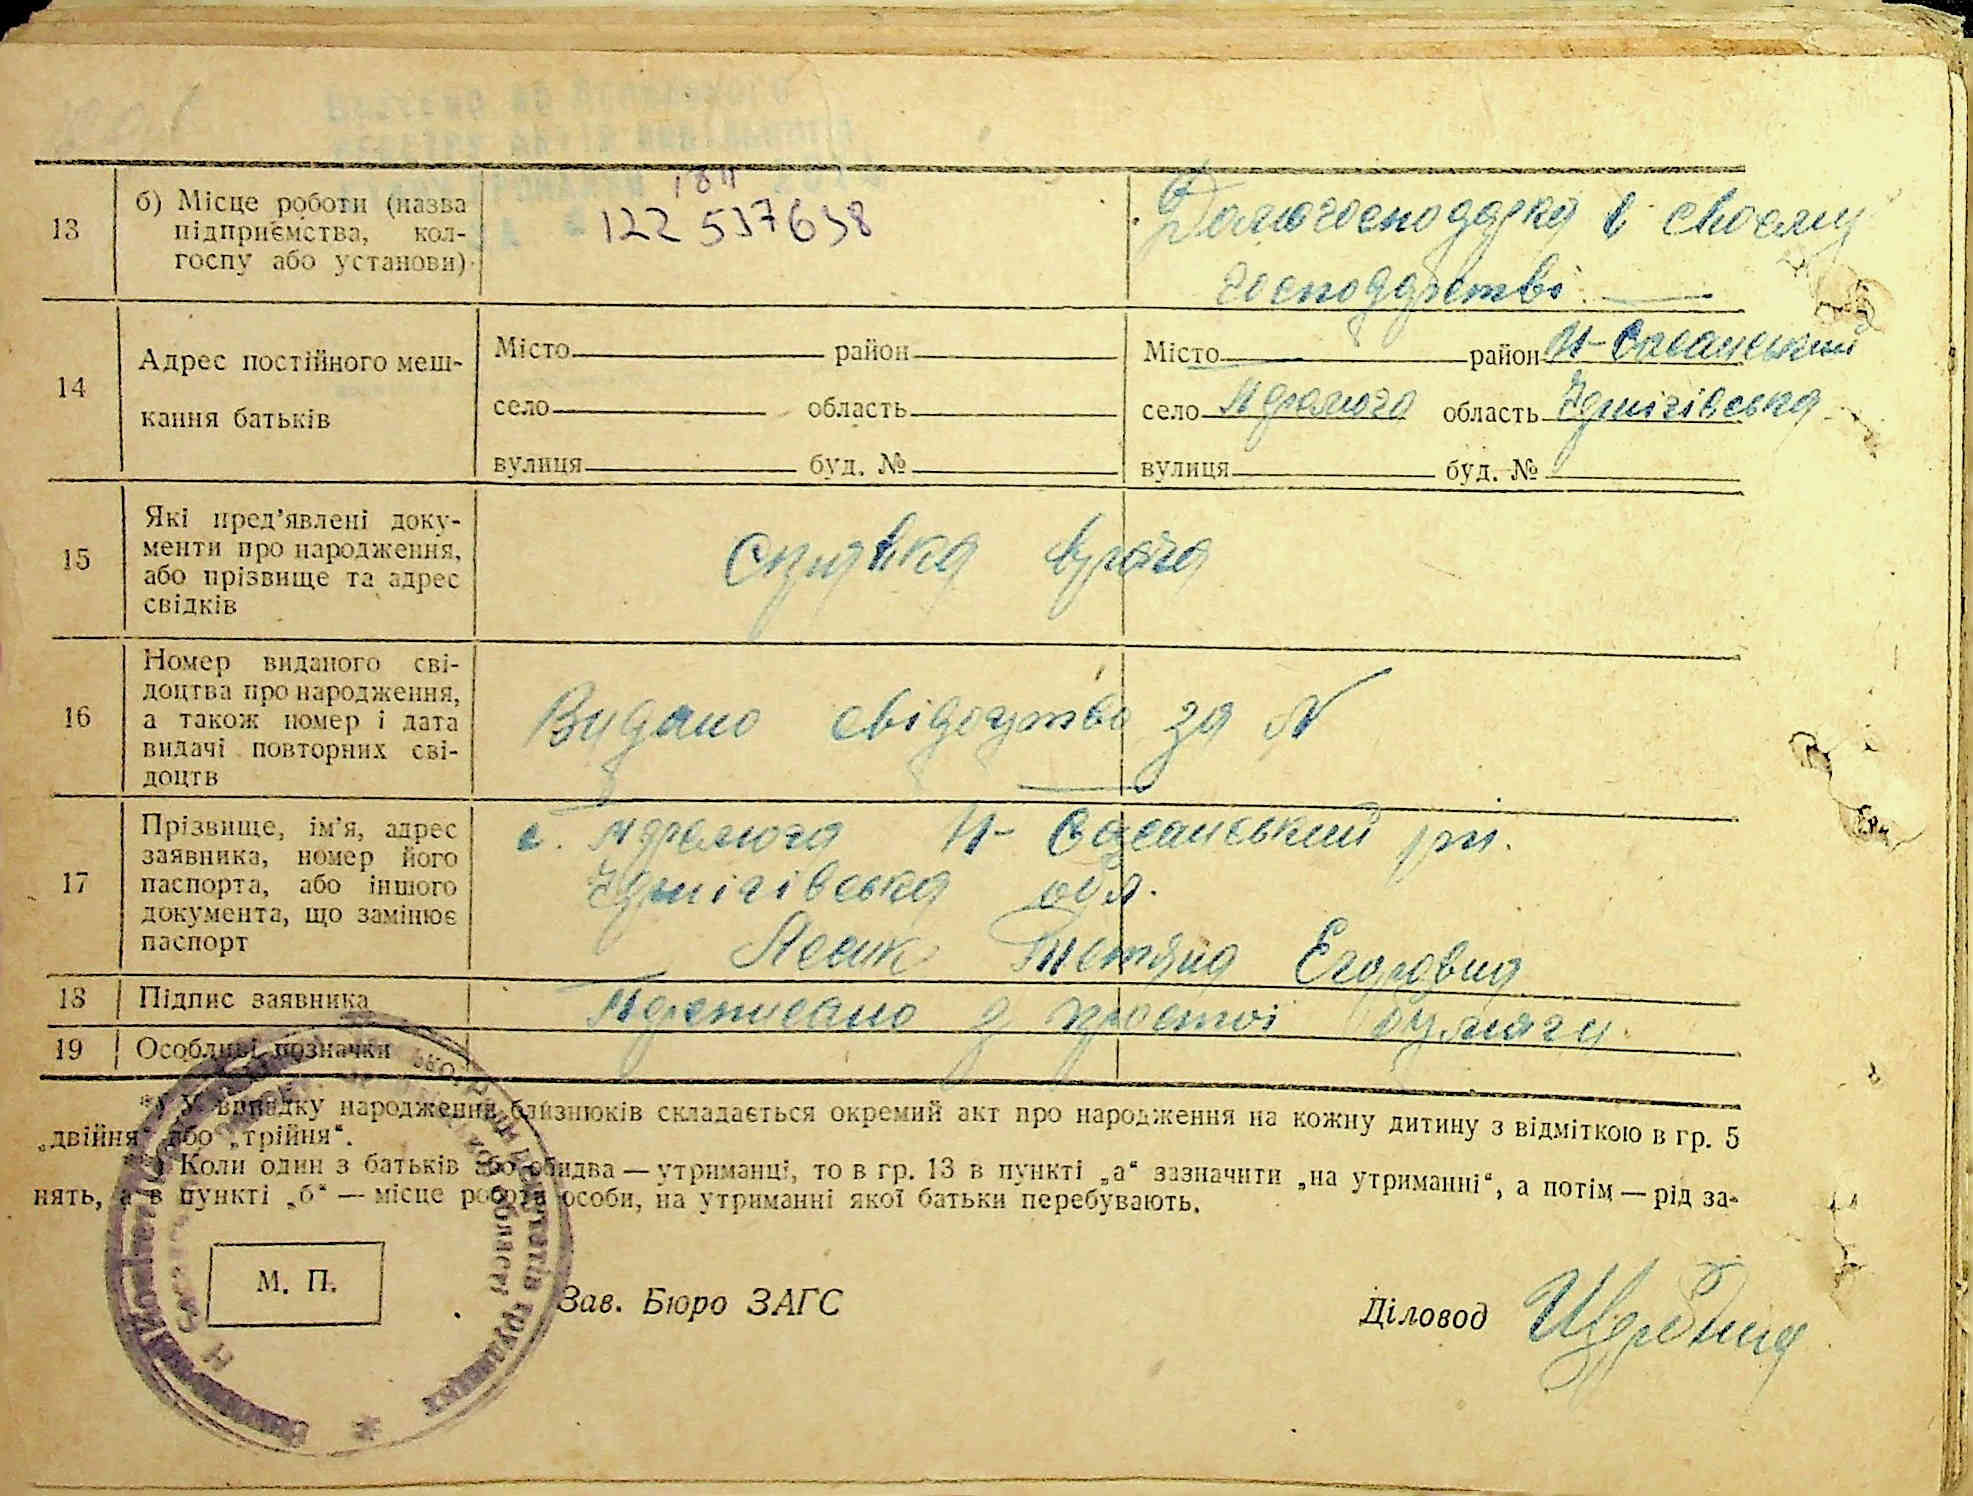 13
б) Місце роботи (назва
підприємства, кол-
госпу або установи)
122 537638
Домогосподарка в своєму
господарстві
14
Адрес постійного меш-
кання батьків
Місто район
село область
вулиця буд. №
Місто район
село область Чернігівська
вулиця буд. №
15
Які пред’явлені доку-
менти про народження,
або прізвище та адрес
свідків
Справка врача
16
Номер виданого сві-
доцтва про народження,
а також номер і дата
видачі повторних сві-
доцтв
Видано свідоцтво за N
17
Прізвище, ім’я, адрес
заявника, номер його
паспорта, або іншого
документа, що замінює
паспорт
с.
Чернігівська обл.
Тетяна Егоровна
18
Підпис заявника
19
Особливі позначки
Переписано з простої бумаги.
*) У випадку народження близнюків складається окремий акт про народження на кожну дитину з відміткою в гр. 5
„двійня“ або „трійня“.
Коли один з батьків або обидва — утриманці, то в гр. 13 в пункті „а“ зазначити „на утриманні“, а потім — рід за-
нять, а в пункті „б“ — місце роботи особи, на утриманні якої батьки перебувають.
М. П.
Зав. Бюро ЗАГС
Діловод